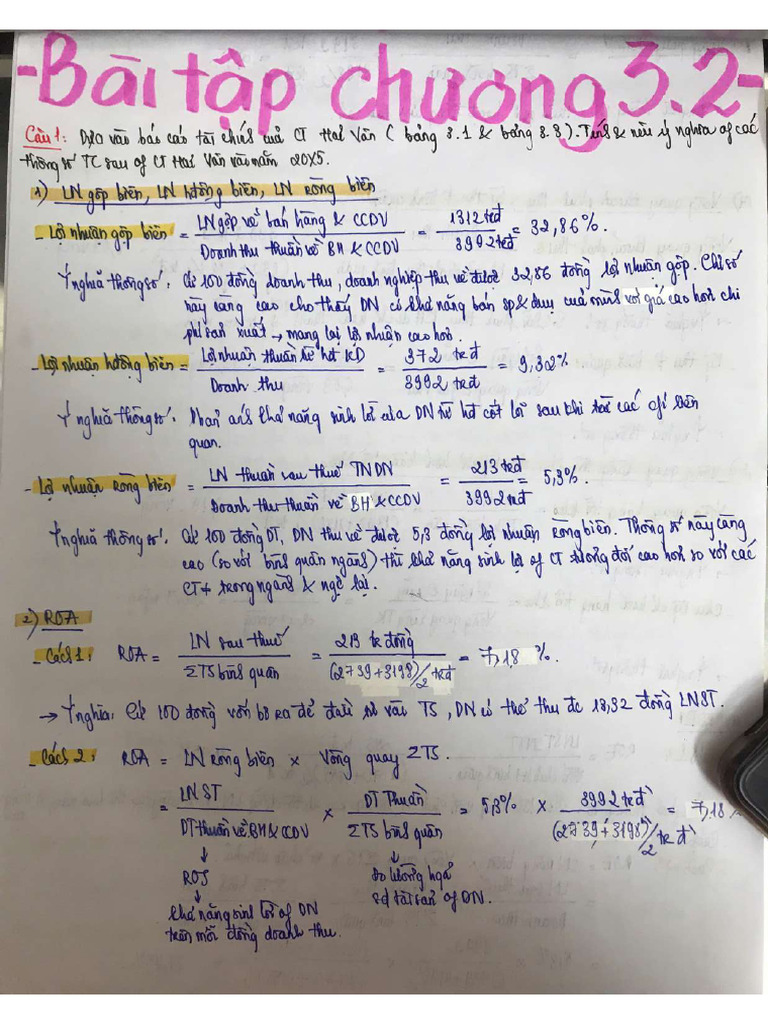 -Bài tập chương 3.2-
Câu 1: Dựa vào báo cáo tài chính của CT Hải Vân ( bảng 3.1 & bảng 3.3). Tính & nêu ý nghĩa of các
thông số TC sau of CT Hải Vân vào năm 20X5.
1) LN gộp biên, LN hđộng biên, LN ròng biên
- Lợi nhuận gộp biên = LN gộp về bán hàng & CCDV / Doanh thu thuần về BH & CCDV = 1312 trđ / 3992 trđ = 32,86%.
Ý nghĩa thông số: Cứ 100 đồng doanh thu, doanh nghiệp thu về được 32,86 đồng lợi nhuận gộp. Chỉ số
này càng cao cho thấy DN có khả năng bán sp & dvụ của mình với giá cao hơn chi
phí sản xuất → mang lại lợi nhuận cao hơn.
- Lợi nhuận hđộng biên = Lợi nhuận thuần từ hđ KD / Doanh thu = 372 trđ / 3992 trđ = 9,32%
Ý nghĩa thông số: Phản ánh khả năng sinh lời của DN từ hđ cốt lõi sau khi trừ các cf liên
quan.
- Lợi nhuận ròng biên = LN thuần sau thuế TNDN / Doanh thu thuần về BH & CCDV = 213 trđ / 3992 trđ = 5,3%.
Ý nghĩa thông số: Cứ 100 đồng DT, DN thu về được 5,3 đồng lợi nhuận ròng biên. Thông số này càng
cao (so với bình quân ngành) thì khả năng sinh lợi of CT tương đối cao hơn so với các
CT≠ trong ngành & ngc lại.
2) ROA
- Cách 1: ROA = LN sau thuế / ΣTS bình quân = 213 tr đồng / (2739+3198)/2 trđ = 7,18 %.
→ Ý nghĩa: Cứ 100 đồng vốn bỏ ra để đầu tư vào TS, DN có thể thu đc 18,32 đồng LNST.
- Cách 2: ROA = LN ròng biên × Vòng quay ΣTS.
= LNST / DT thuần về BH & CCDV × DT Thuần / ΣTS bình quân = 5,3% × 3992 trđ / (2739+3198)/2 trđ = 7,18
↓ ↓
ROS đo lường hquả
↓ sd tài sản of DN.
khả năng sinh lời of DN
trên mỗi đồng doanh thu.